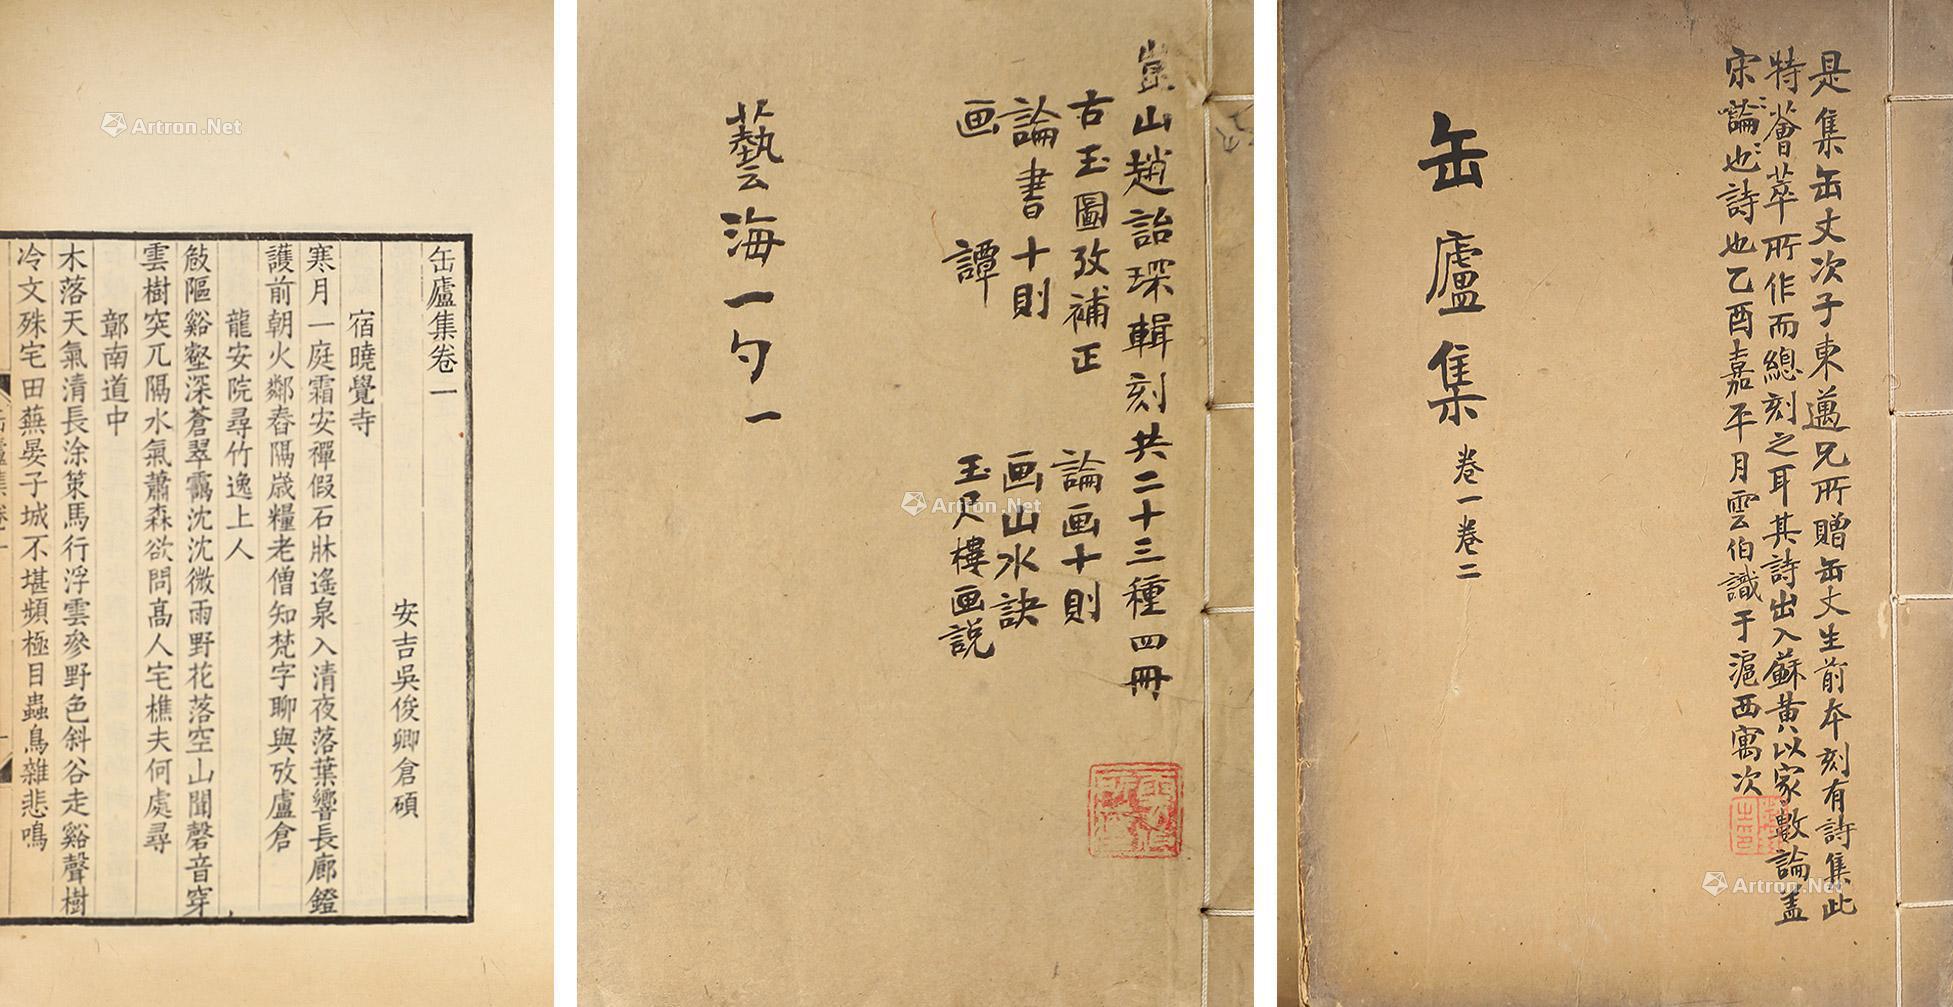 缶廬集卷一
安吉吳俊卿倉碩
宿曉覺寺
寒月一庭霜安禪假石牀遙泉入清夜落葉響長廊鐙
護前朝火鄰舂隔歲糧老僧知梵字聊與攷盧倉
龍安院尋竹逸上人
敧嶇谿壑深蒼翠靄沈沈微雨野花落空山聞磬音穿
雲樹突兀隔水氣蕭森欲問高人宅樵夫何處尋
鄣南道中
木落天氣清長涂策馬行浮雲參野色斜谷走谿聲樹
冷文殊宅田蕪晏子城不堪頻極目蟲鳥雜悲鳴
山趙詒琛輯刻共二十三種四冊
古玉圖攷補正 論画十則
論書十則 画山水訣
画譚 玉尺樓画説
藝海一勺 一
是集缶丈次子東邁兄所贈缶丈生前本刻有詩集此
特薈萃所作而總刻之耳其詩出入蘇黃以家數論盖
宋詩也乙酉嘉平月雲伯識于滬西寓次
缶廬集 卷一卷二
Artron.Net
Artron.Net
Artron.Net